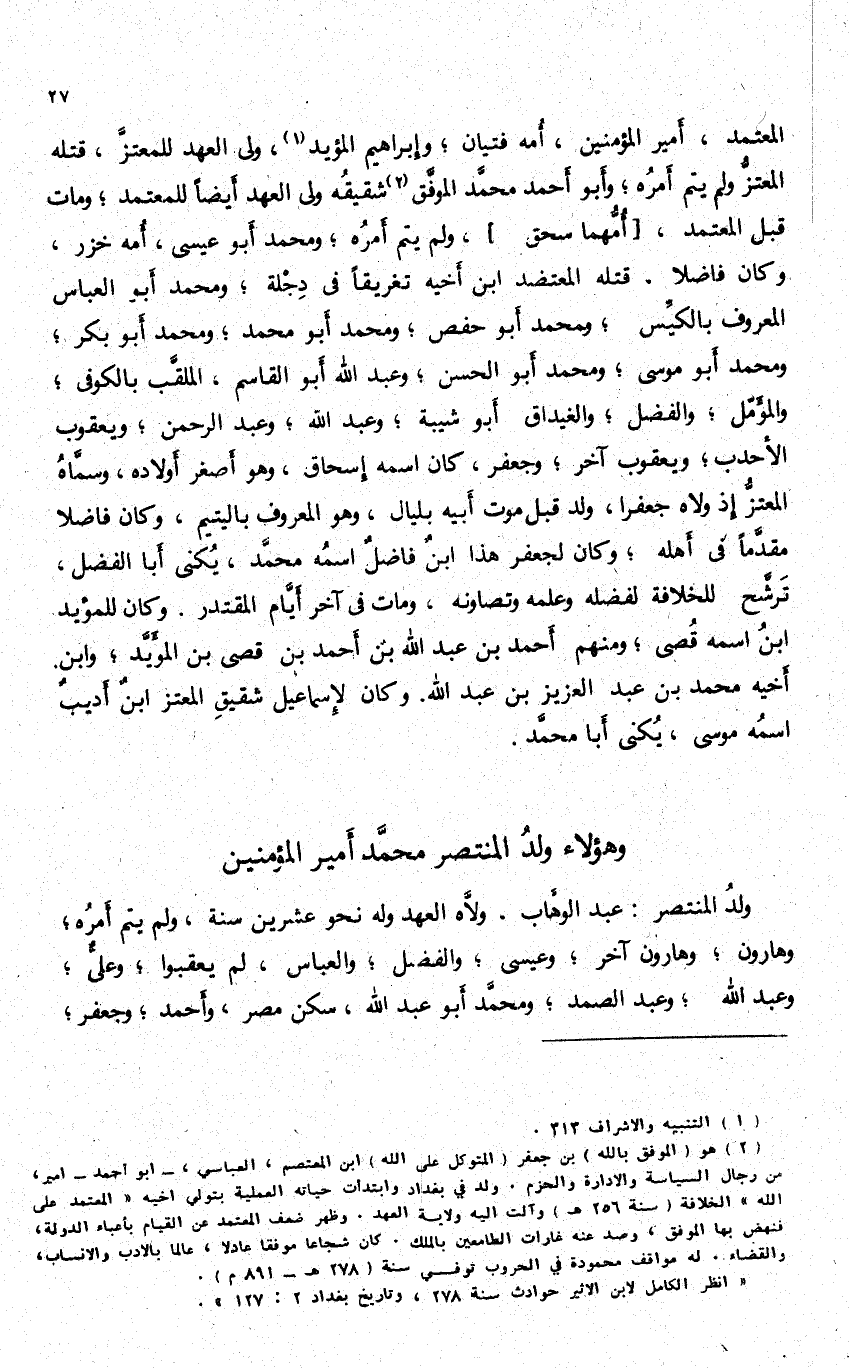 ٢٧
المعتمد ، أَمير المؤمنين ، أُمه فتيان ؛ وإبراهيم المؤيد(١)، ولى العهد للمعتزَّ ، قتله
المعتزُّ ولم يتم أَمرُه ؛ وأَبو أَحمد محمَّد الموفَّق(٢) شقيقُه ولى العهد أَيضاً للمعتمد ؛ ومات
قبل المعتمد ، [ أُمُّهما سحق ] ، ولم يتم أَمرُه ؛ ومحمد أَبو عيسى ، أُمه خزر ،
وكان فاضلا . قتله المعتضد ابن أَخيه تغريقاً فى دِجْلة ؛ ومحمد أَبو العباس
المعروف بالكيِّس ؛ ومحمد أَبو حفص ؛ ومحمد أَبو محمد ؛ ومحمد أَبو بكر ؛
ومحمد أَبو موسى ؛ ومحمد أَبو الحسن ؛ وعبد الله أَبو القاسم ، الملقَّب بالكوفى ؛
والمؤَمّل ؛ والفضل ؛ والغيداق أَبو شيبة ؛ وعبد الله ؛ وعبد الرحمن ؛ ويعقوب
الأَحدب ؛ ويعقوب آخر ؛ وجعفر ، كان اسمه إسحاق ، وهو أَصغر أَولاده ، وسمَّاهُ
المعتزُّ إذ ولاه جعفرا ، ولد قبل موت أَبيه بليال ، وهو المعروف باليتيم ، وكان فاضلا
مقدَّماً فى أَهله ؛ وكان لجعفر هذا ابنٌ فاضلٌ اسمُه محمَّد ، يُكنى أَبا الفضل ،
تَرشَّح للخلافة لفضله وعلمه وتصاونه ، ومات فى آخر أَيَّام المقتدر . وكان للمؤيد
ابنُ اسمه قُصى ؛ ومنهم أَحمد بن عبد الله بن أَحمد بن قصى بن المؤيَّد ؛ وابن
أَخيه محمد بن عبد العزيز بن عبد الله. وكان لإسماعيل شقيقِ المعتز ابنٌ أَديبٌ
اسمُه موسى ، يُكنى أَبا محمَّد .
وهؤلاء ولدُ المنتصر محمَّد أَمير المؤمنين
ولدُ المنتصر : عبد الوهَّاب . ولاَّه العهد وله نحو عشرين سنة ، ولم يتم أَمرُه ؛
وهارون ؛ وهارون آخر ؛ وعيسى ؛ والفضل ؛ والعباس ، لم يعقبوا ؛ وعلىٌّ ؛
وعبد الله ؛ وعبد الصمد ؛ ومحمَّد أَبو عبد الله ، سكن مصر ، وأَحمد ؛ وجعفر ؛
( ١ ) التنبيه والاشراف ٣١٣ .
( ٢ ) هو ( الموفق بالله ) بن جعفر ( المتوكل على الله ) ابن المعتصم ، العباسي ، ــ ابو أحمد ــ امير،
من رجال السياسة والادارة والحزم . ولد في بغداد وابتدأت حياته العملية بتولي اخيه « المعتمد على
الله » الخلافة ( سنة ٢٥٦ هـ ) وآلت اليه ولاية العهد . وظهر ضعف المعتمد عن القيام بأعباء الدولة،
فنهض بها الموفق ، وصد عنه غارات الطامعين بالملك . كان شجاعا موفقا عادلا ، عالما بالادب والانساب،
والقضاء. له مواقف محمودة في الحروب توفي سنة ( ٢٧٨ هـ ــ ٨٩١ م ) .
« انظر الكامل لابن الاثير حوادث سنة ٢٧٨ ، وتاريخ بغداد ٢ : ١٢٧ » .